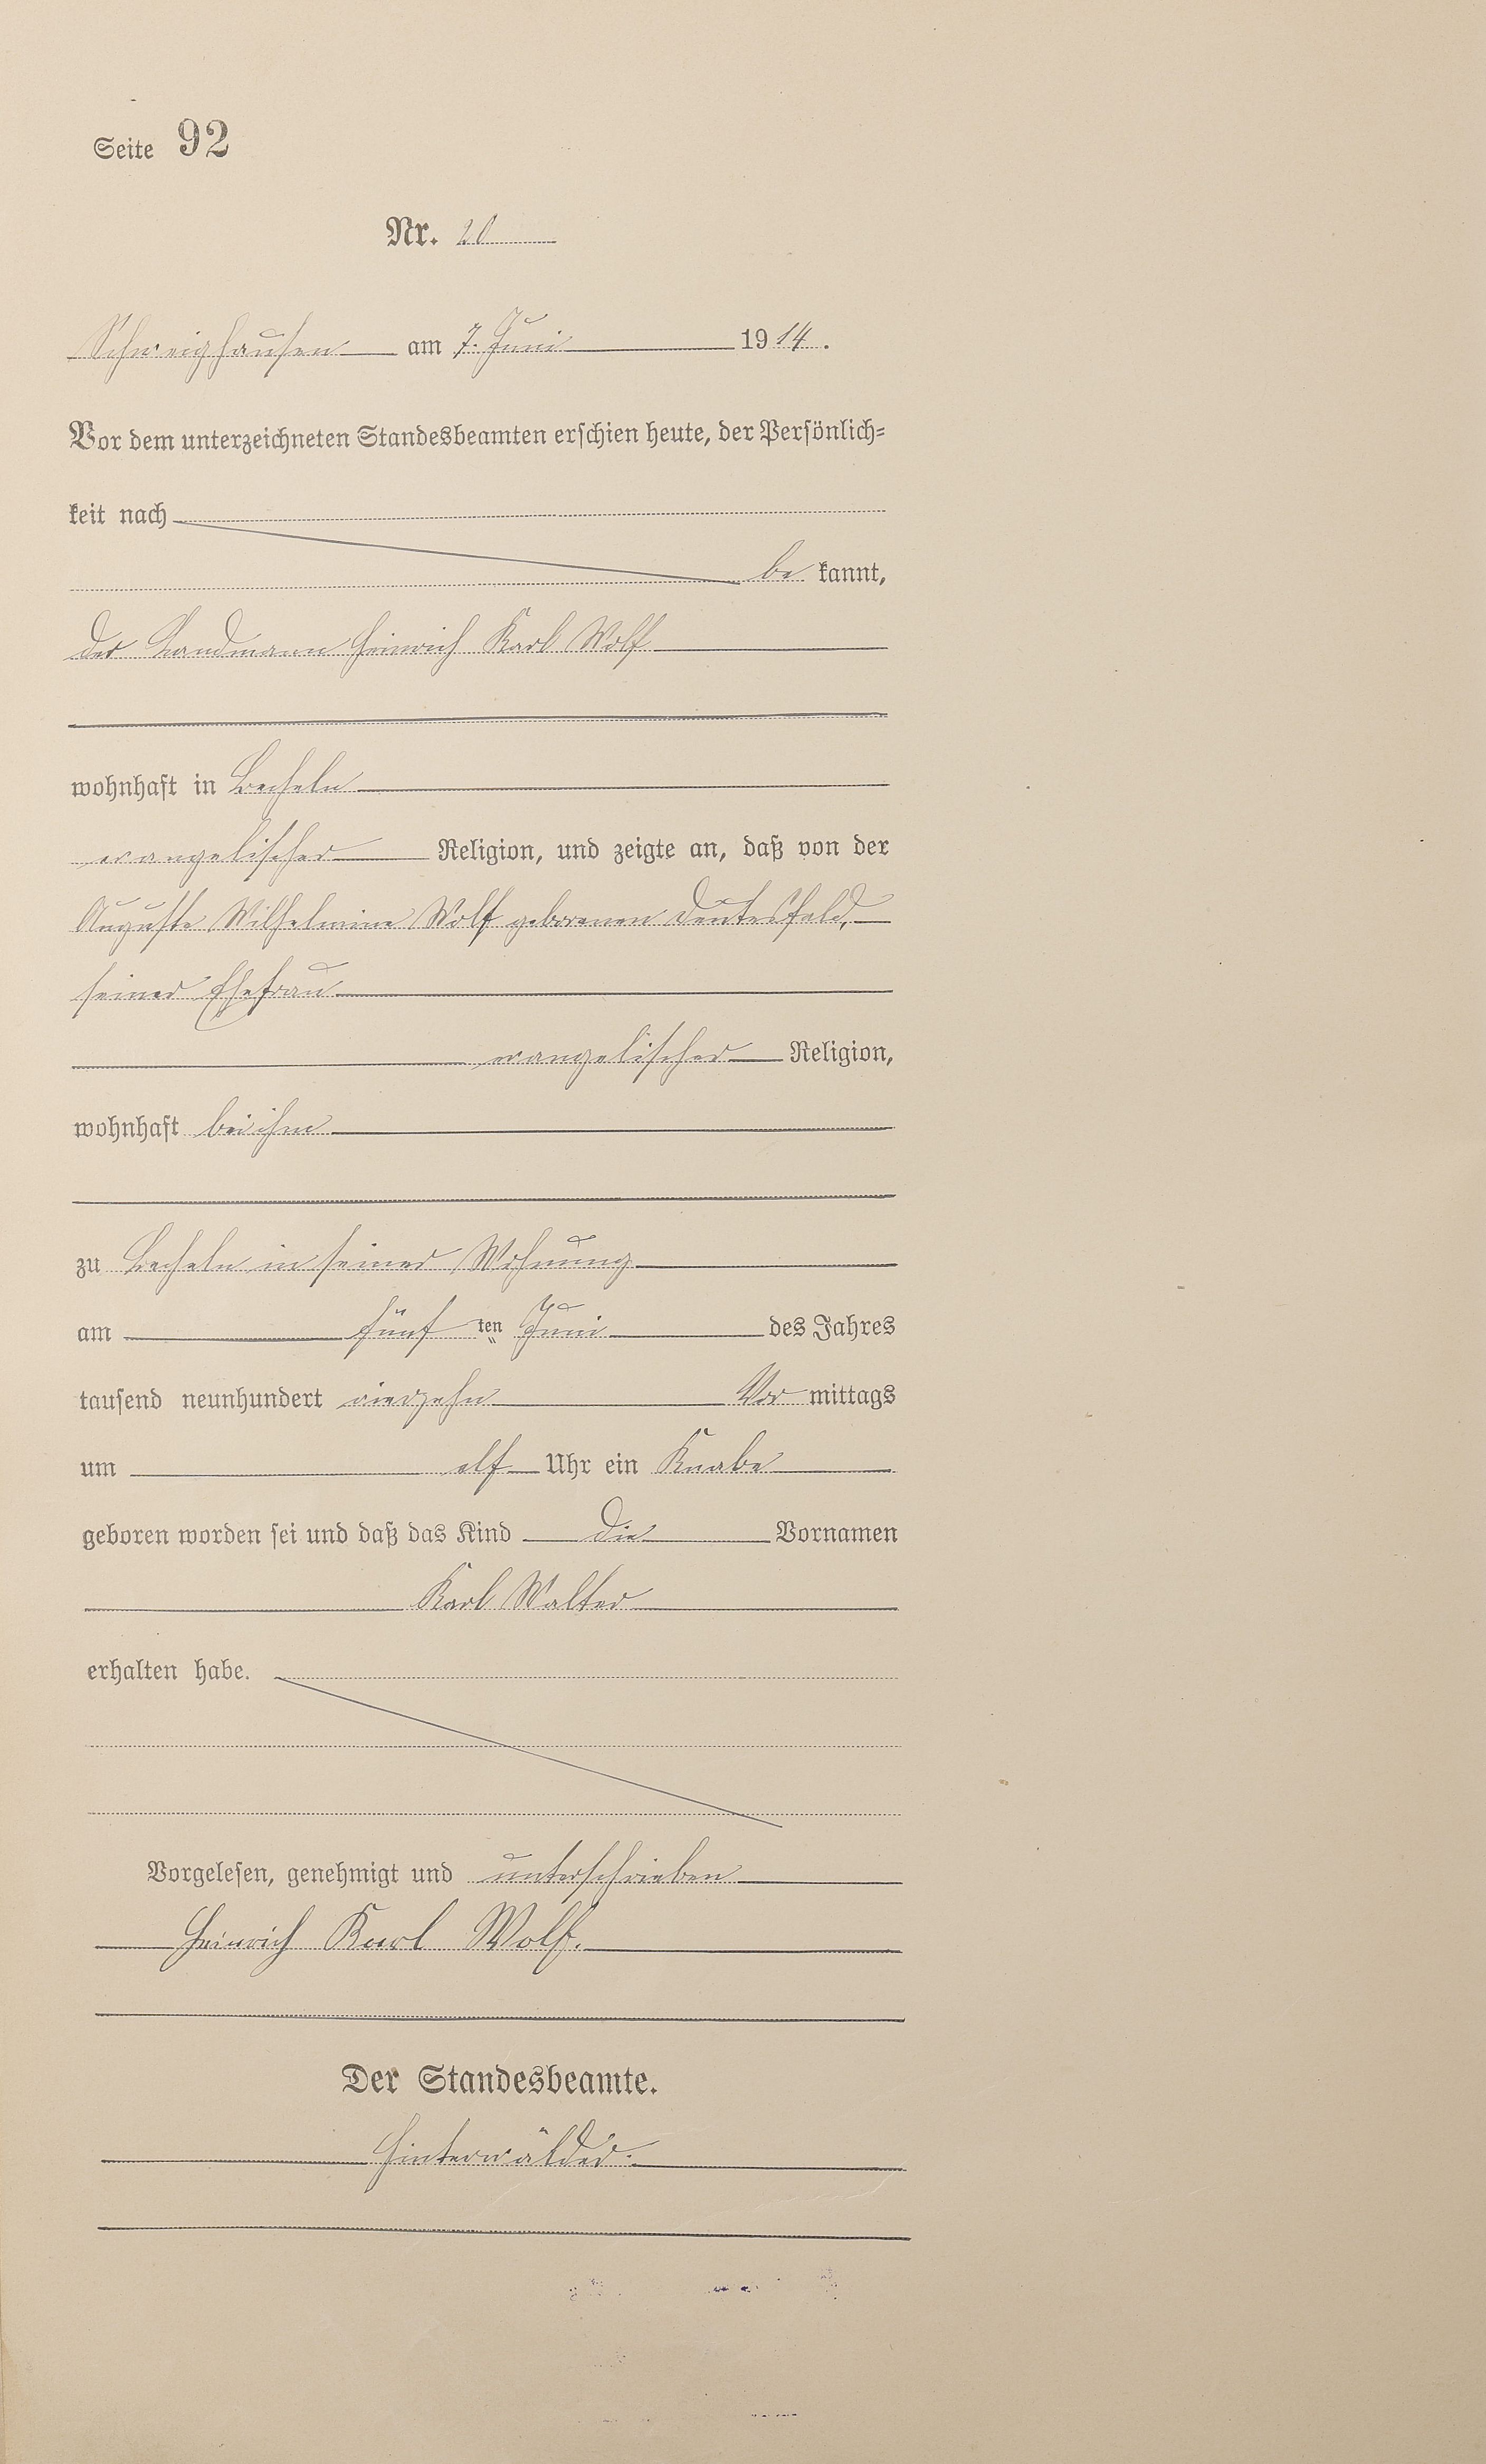 Seite 92
Nr. 20
Schweighausen am 7. Juni 1914.
Vor dem unterzeichneten Standesbeamten erschien heute, der Persönlich=
keit nach
be kannt,
der Landmann Heinrich Karl Wolf
wohnhaft in Becheln
evangelischer Religion, und zeigte an, daß von der
Auguste Wilhelmine Wolf geborenen Deutesfeld,
seiner Ehefrau
evangelischer Religion,
wohnhaft bei ihm
zu Becheln in seiner Wohnung
am fünf ten Juni des Jahres
tausend neunhundert vierzehn Vor mittags
um elf Uhr ein Knabe
geboren worden sei und daß das Kind die Vornamen
Karl Walter
erhalten habe.
Vorgelesen, genehmigt und unterschrieben
Heinrich Karl Wolf.
Der Standesbeamte.
Hinterwälder.